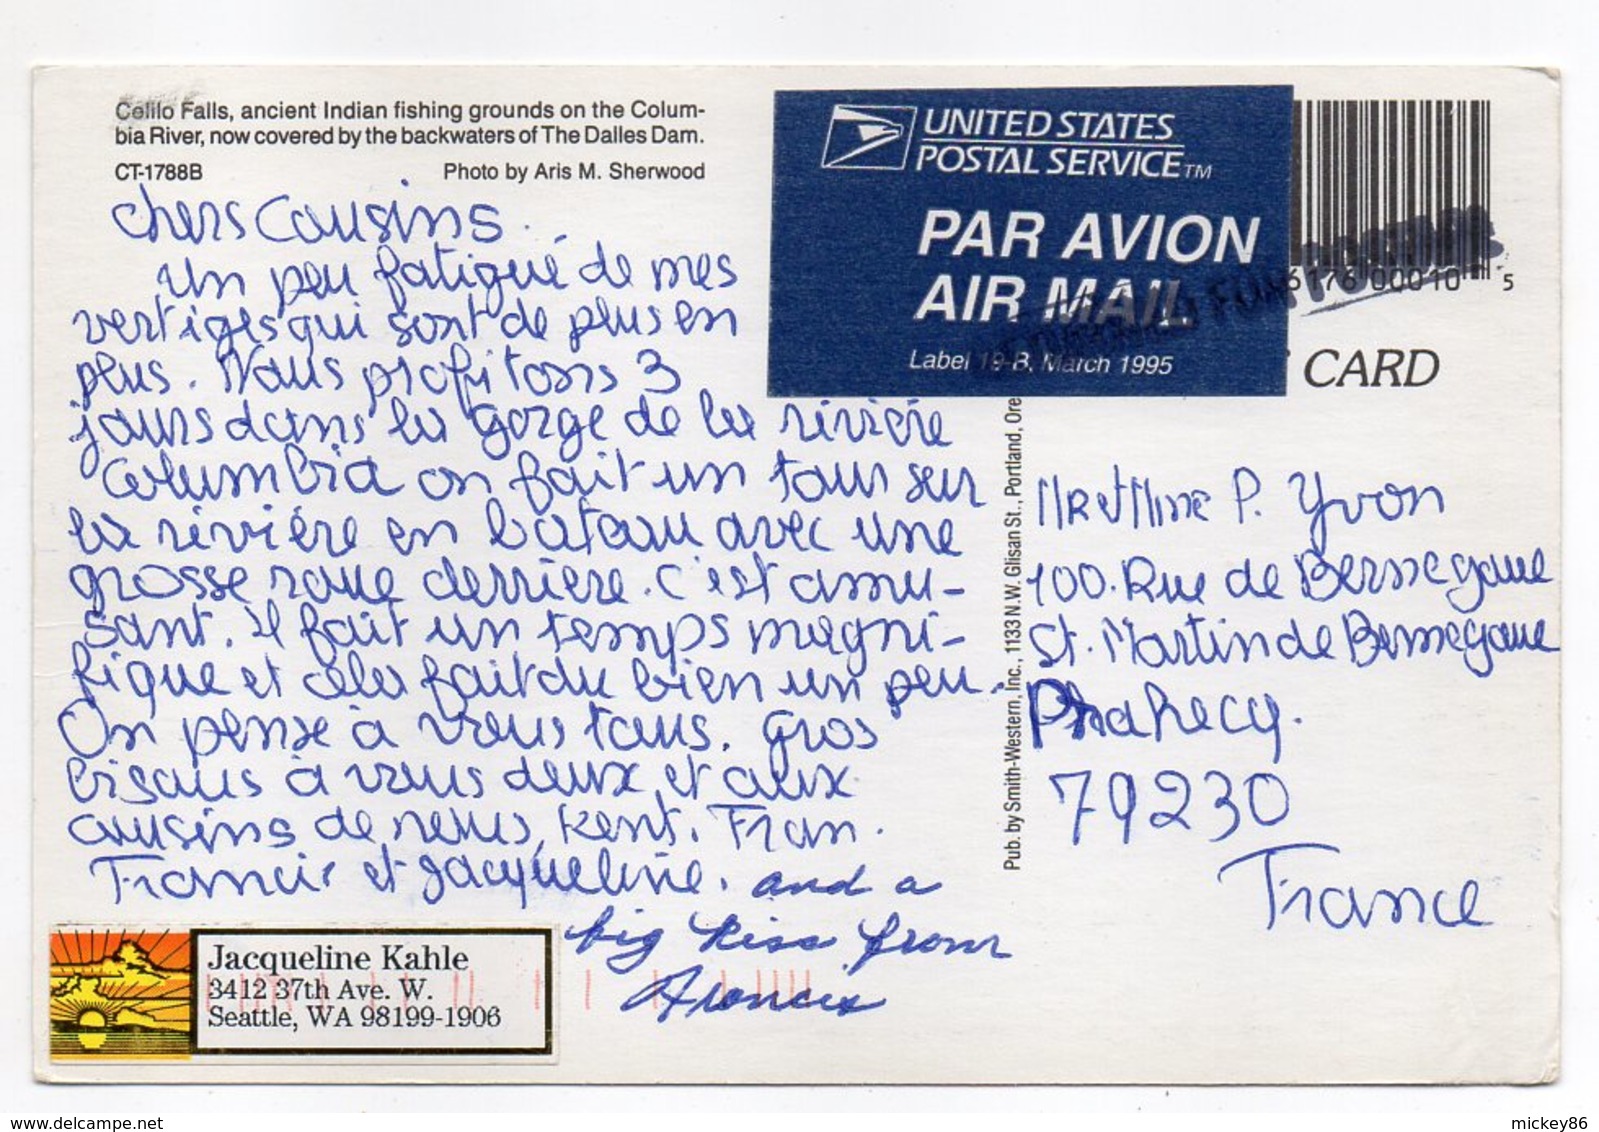 Celilo Falls, ancient Indian fishing grounds on the Colum-
bia River, now covered by the backwaters of The Dalles Dam.
CT-1788B Photo by Aris M. Sherwood
Chers Cousins.
Un peu fatigué de mes
vertiges qui sont de plus en
plus. Nous profitons 3
jours dans la gorge de la rivière
Columbia on fait un tour sur
la rivière en bateau avec une
grosse roue derrière. C'est amu-
sant. il fait un temps magni-
fique et cela fait du bien un peu.
On pense à vous tous. Gros
bisous à vous deux et aux
cousins de nous, Kent. Fran.
Francis et Jacqueline. and a
big kiss from
Frances
Jacqueline Kahle
3412 37th Ave. W.
Seattle, WA 98199-1906
Pub. by Smith-Western, Inc., 1133 N.W. Glisan St., Portland, Ore
UNITED STATES
POSTAL SERVICE TM
PAR AVION
AIR MAIL
Label 19-B, March 1995
FOR POSTAGE
6176 00010 5
CARD
Mr et Mme P. Yvon
100. Rue de Bernegoue
St. Martin de Bernegoue
Prahecq.
79230
France
mickey86